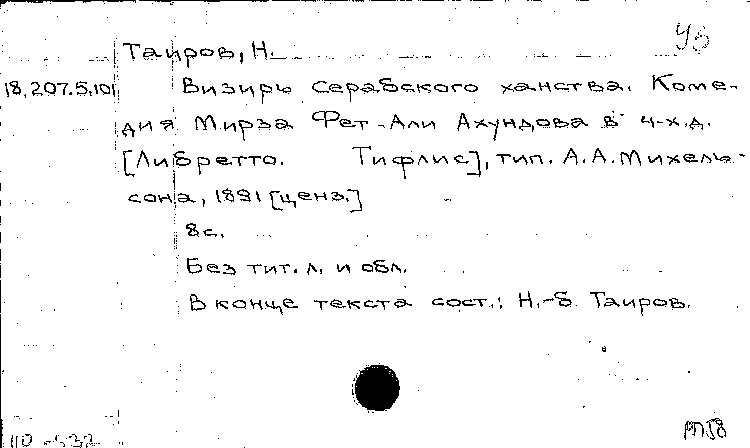 Таиров, Н.
18.207.5.101 Визирь Серабского ханства. Коме-
дия Мирза Фет-Али Ахундова в 4-х.д.
[Либретто. Тифлис], тип. А.А.Михель-
сона, 1891 [ценз.]
8с.
Без тит. л. и обл.
В конце текста сост.: Н.-б Таиров.